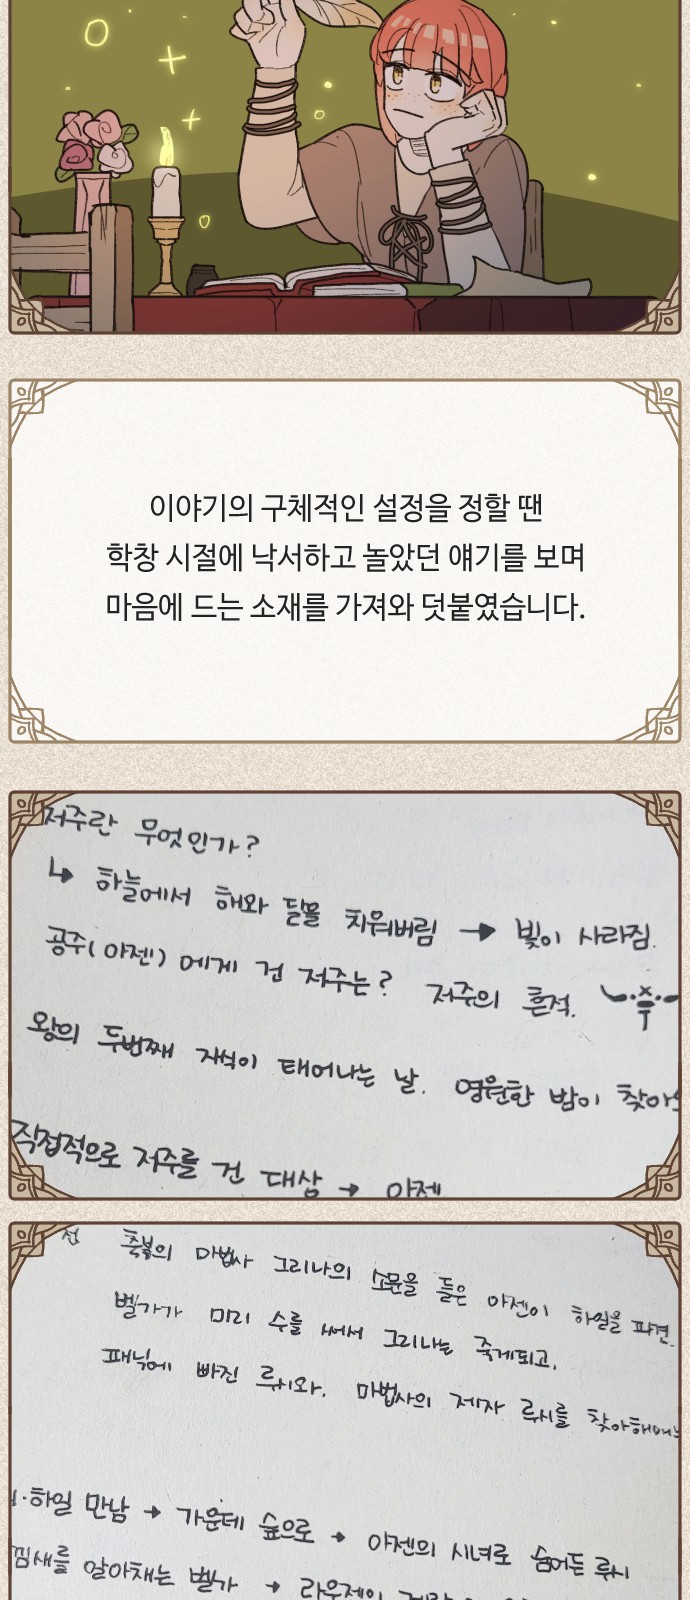 이야기의 구체적인 설정을 정할 땐
학창 시절에 낙서하고 놀았던 얘기를 보며
마음에 드는 소재를 가져와 덧붙였습니다.
저주란 무엇인가?
↳ 하늘에서 해와 달을 치워버림 → 빛이 사라짐.
공주(아젠)에게 건 저주는? 저주의 흔적.
왕의 두번째 자식이 태어나는 날. 영원한 밤이
직접적으로 저주를 건 대상 → 아젠
전 축복의 마법사 그리나의 소문을 들은 아젠이 하일을 파견.
벨가가 미리 수를 써서 그리나는 죽게되고,
패닉에 빠진 루시와. 마법사의 제자 루시를 찾아헤매는
하일 만남 → 가운데 숲으로 → 아젠의 시녀로 숨어든 루시
낌새를 알아채는 벨가 →